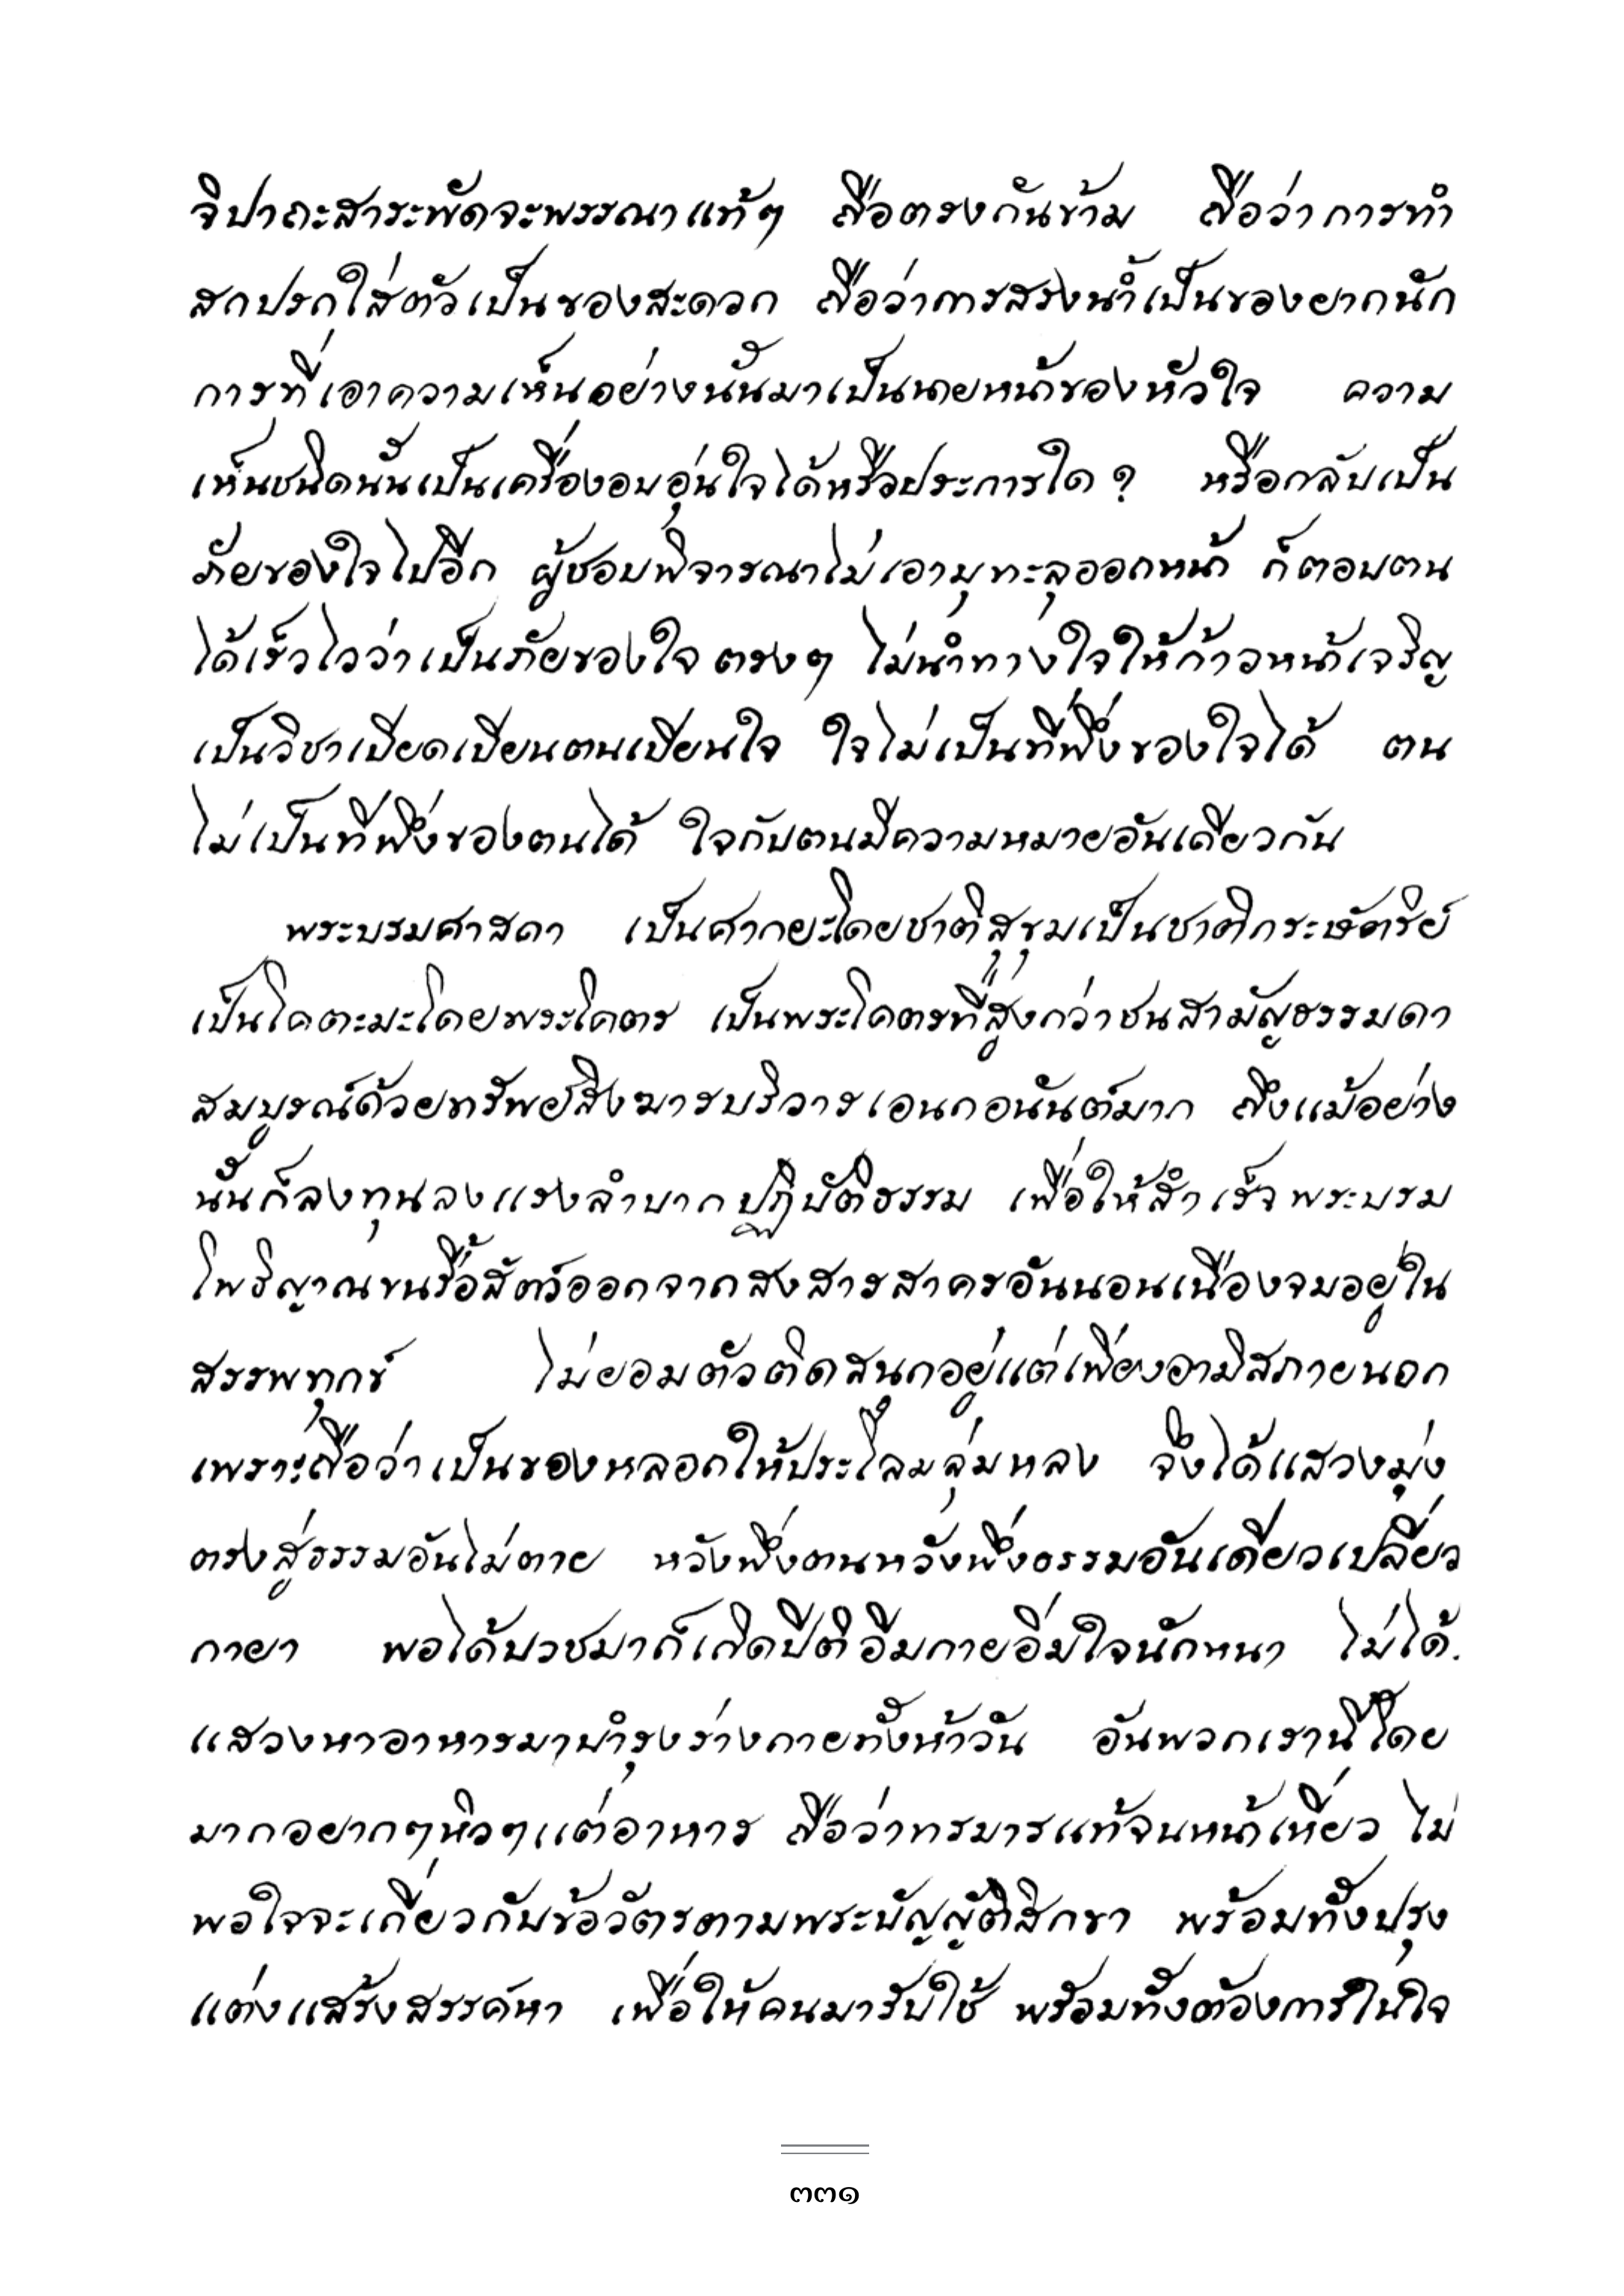 จิปาถะสาระพัดจะพรรณาแท้ๆ ถือตรงกันข้าม ถือว่าการทำ
สกปรกใส่ตัวเป็นของสะดวก ถือว่าการสรงน้ำเป็นของยากนัก
การที่เอาความเห็นอย่างนั้นมาเป็นนายหน้าของหัวใจ ความ
เห็นชนิดนั้นเป็นเครื่องอบอุ่นใจได้หรือประการใด ? หรือกลับเป็น
ภัยของใจไปอีก ผู้ชอบพิจารณาไม่เอามุทะลุออกหน้า ก็ตอบตน
ได้เร็วไวว่าเป็นภัยของใจตรงๆ ไม่นำทางใจให้ก้าวหน้าเจริญ
เป็นวิชาเบียดเบียนตนเบียนใจ ใจไม่เป็นที่พึ่งของใจได้ ตน
ไม่เป็นที่พึ่งของตนได้ ใจกับตนมีความหมายอันเดียวกัน
พระบรมศาสดา เป็นศากยะโดยชาติสุขุมเป็นชาติกระษัตริย์
เป็นโคตะมะโดยพระโคตร เป็นพระโคตรที่สูงกว่าชนสามัญธรรมดา
สมบูรณ์ด้วยทรัพย์สิงฆารบริวารเอนกอนันต์มาก ถึงแม้อย่าง
นั้นก็ลงทุนลงแรงลำบากปฏิบัติธรรม เพื่อให้สำเร็จพระบรม
โพธิญาณขนรื้อสัตว์ออกจากสงสารสาครอันนอนเนื่องจมอยู่ใน
สรรพทุกข์ ไม่ยอมตัวติดสนุกอยู่แต่เพียงอามิสภายนอก
เพราะถือว่าเป็นของหลอกให้ประโลมลุ่มหลง จึงได้แสวงมุ่ง
ตรงสู่ธรรมอันไม่ตาย หวังพึ่งตนหวังพึ่งธรรมอันเดียวเปลี่ยว
กายา พอได้บวชมาก็เกิดปีติอิ่มกายอิ่มใจนักหนา ไม่ได้.
แสวงหาอาหารมาบำรุงร่างกายทั้งห้าวัน อันพวกเรานี้โดย
มากอยากๆหิวๆแต่อาหาร ถือว่าทรมารแท้จนหน้าเหี่ยว ไม่
พอใจจะเกี่ยวกับข้อวัตรตามพระบัญญัติสิกขา พร้อมทั้งปรุง
แต่งแสร้งสรรค์หา เพื่อให้คนมารับใช้ พร้อมทั้งต้องการให้ใจ
๓๓๑